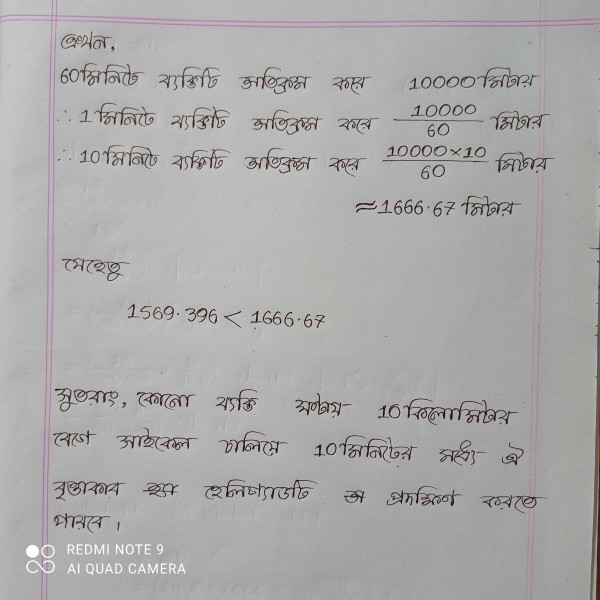 এখন,
60 মিনিটে ব্যক্তিটি অতিক্রম করে 10000 মিটার
∴ 1 মিনিটে ব্যক্তিটি অতিক্রম করে 10000/60 মিটার
∴ 10 মিনিটে ব্যক্তিটি অতিক্রম করে 10000×10/60 মিটার
≈ 1666.67 মিটার
যেহেতু
1569.396 < 1666.67
সুতরাং, কোনো ব্যক্তি ঘণ্টায় 10 কিলোমিটার
বেগে সাইকেল চালিয়ে 10 মিনিটের মধ্যে ঐ
বৃত্তাকার হেলিপ্যাডটি প্রদক্ষিণ করতে
পারবে।
REDMI NOTE 9
AI QUAD CAMERA